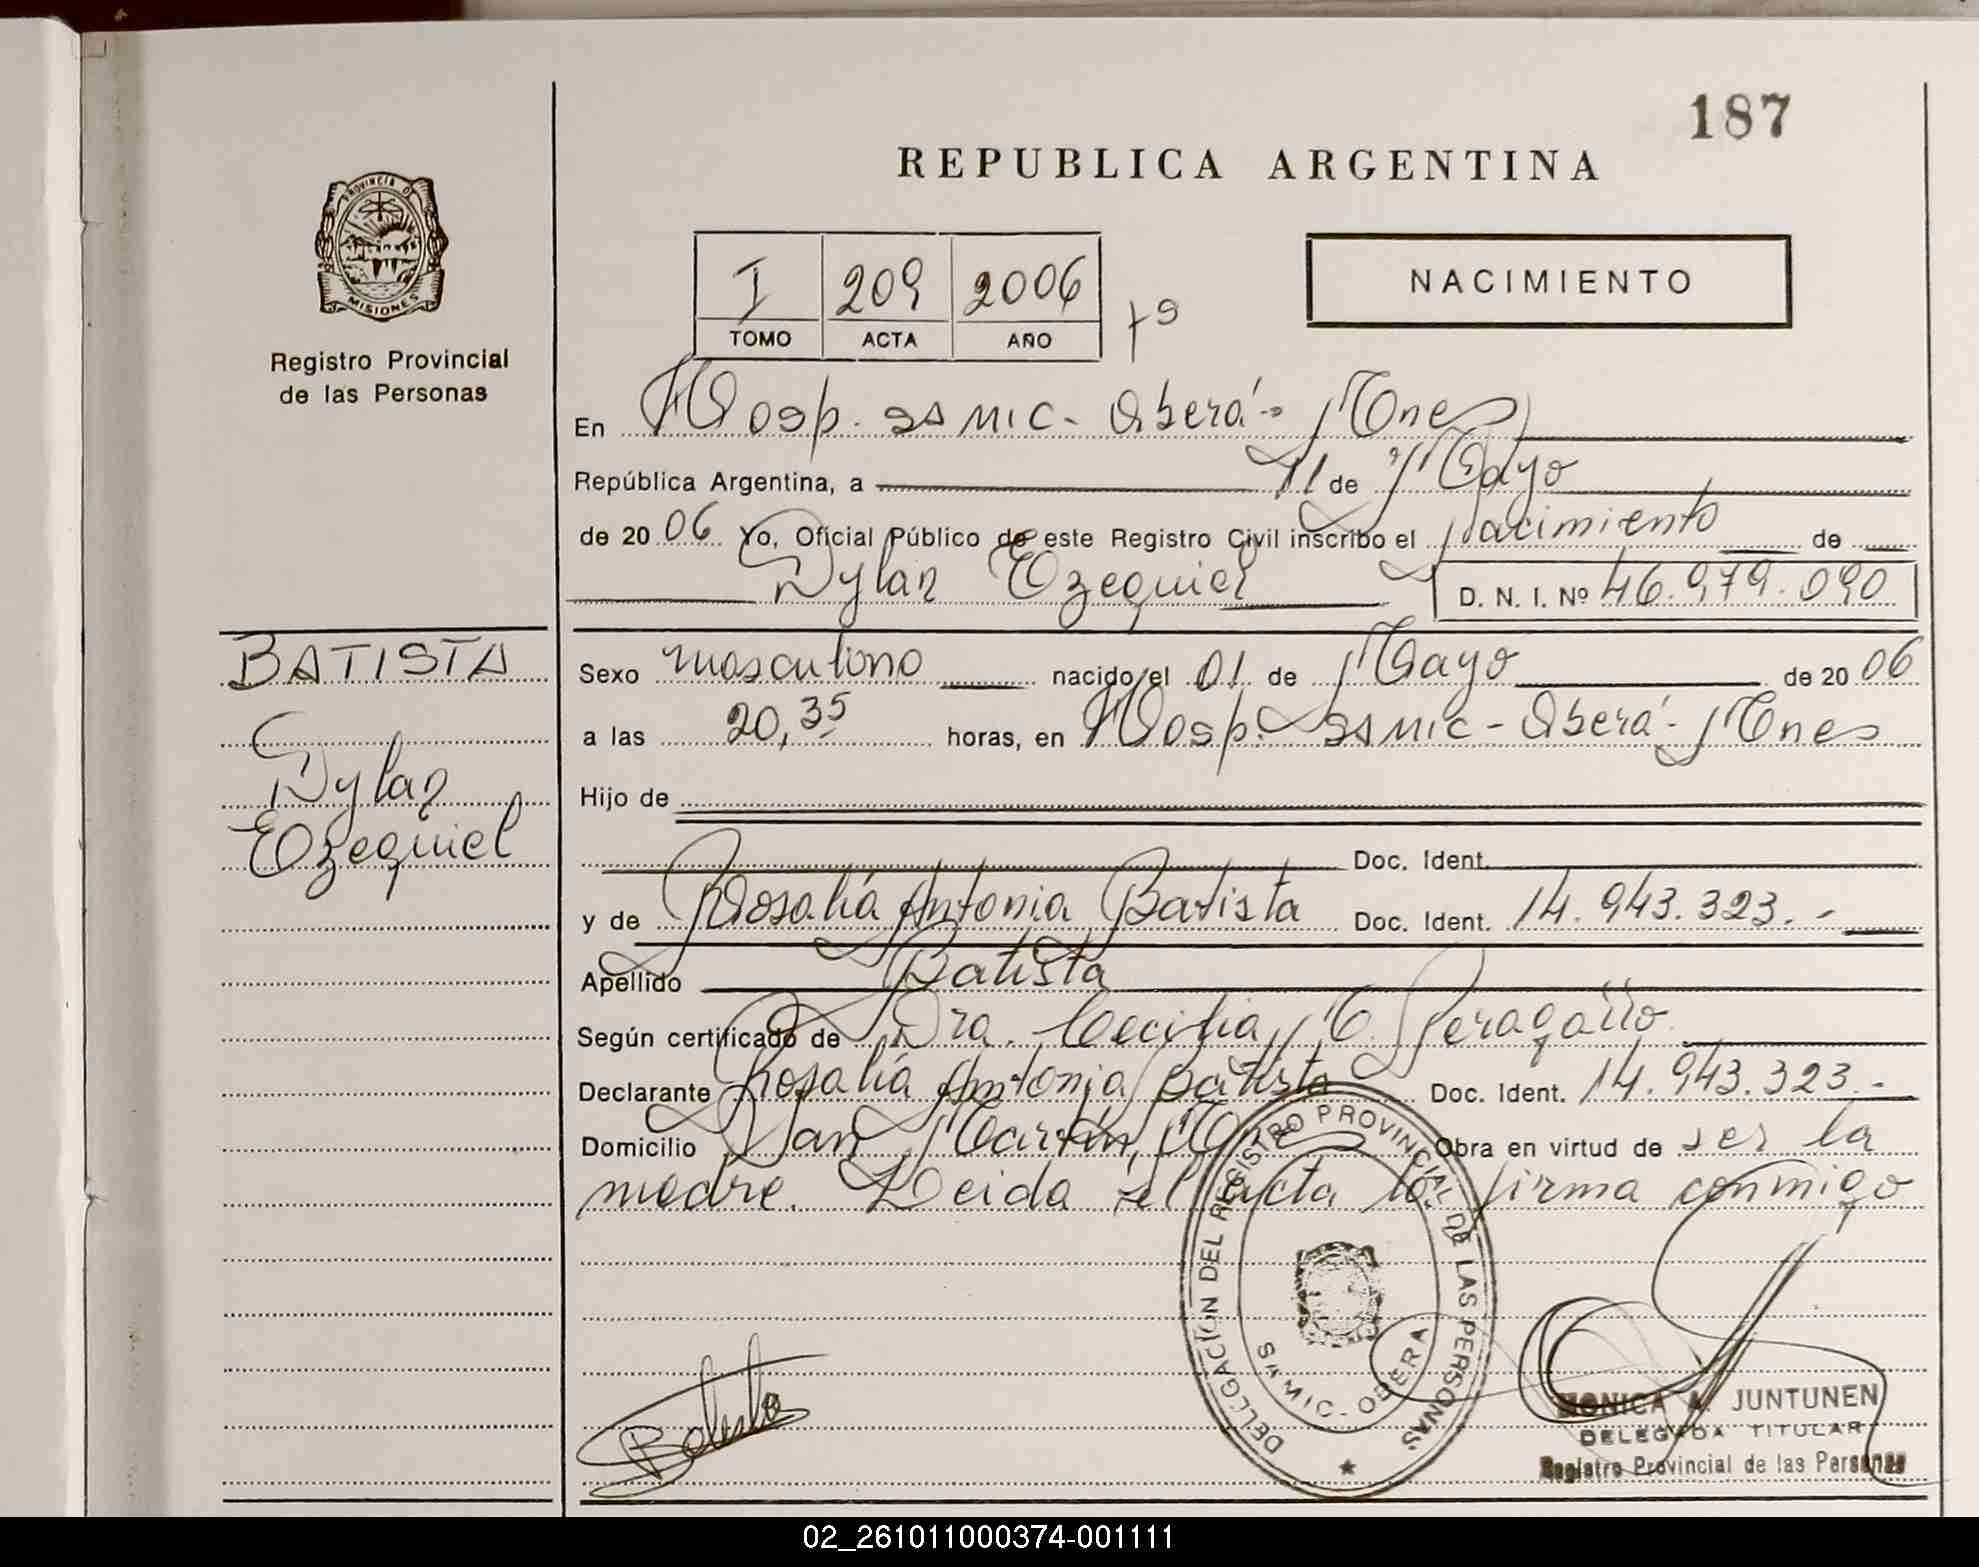 187
REPUBLICA ARGENTINA
PROVINCIA DE
MISIONES
Registro Provincial
de las Personas
I 209 2006
TOMO ACTA AÑO
NACIMIENTO
En Hosp. SAMIC - Oberá - Mnes
República Argentina, a 11 de Mayo
de 2006 Yo, Oficial Público de este Registro Civil inscribo el Nacimiento de
Dylan Ezequiel D. N. I. Nº 46.979.090
BATISTA
Dylan
Ezequiel
Sexo masculino nacido el 01 de Mayo de 2006
a las 20,35 horas, en Hosp. SAMIC - Oberá - Mnes
Hijo de
Doc. Ident.
y de Rosalía Antonia Batista Doc. Ident. 14.943.323.-
Apellido Batista
Según certificado de Dra. Cecilia M. C. Peragallo
Declarante Rosalía Antonia Batista Doc. Ident. 14.943.323.-
Domicilio San Martín, Mnes Obra en virtud de ser la
madre. Leida el acta la firma conmigo
DELEGACIÓN DEL REGISTRO PROVINCIAL DE LAS PERSONAS
SAMIC - OBERA
Batista
MONICA A. JUNTUNEN
DELEGADA TITULAR
Registro Provincial de las Personas
02_261011000374-001111